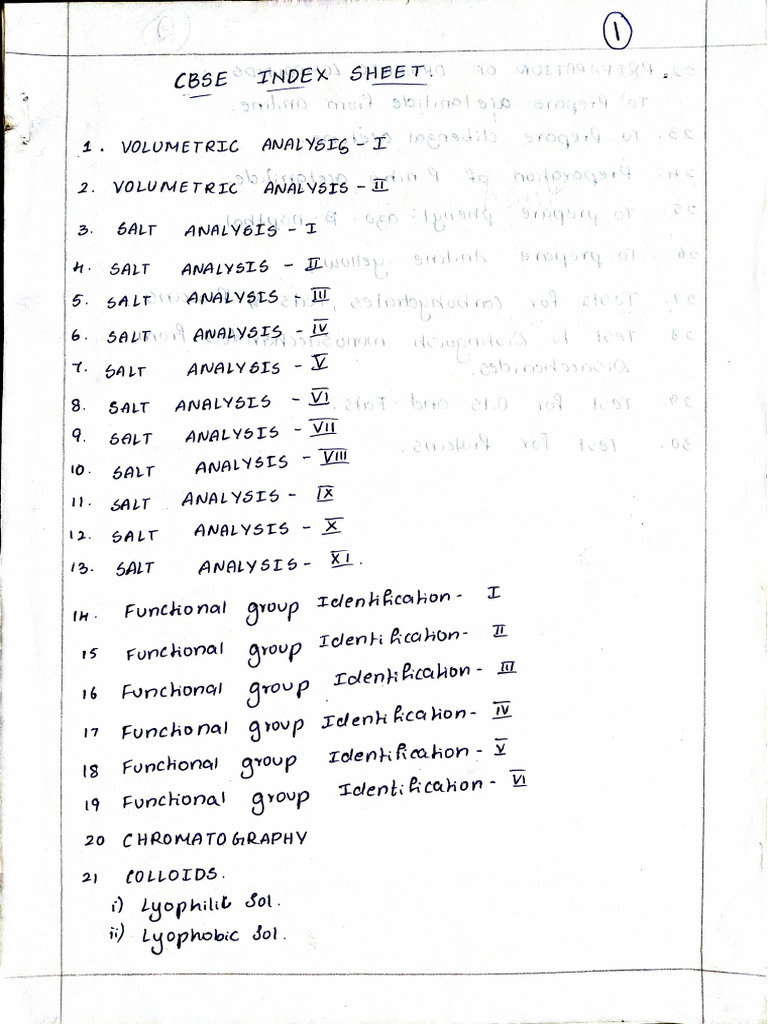 1
CBSE INDEX SHEET.
1. VOLUMETRIC ANALYSIS - I
2. VOLUMETRIC ANALYSIS - II
3. SALT ANALYSIS - I
4. SALT ANALYSIS - II
5. SALT ANALYSIS - III
6. SALT ANALYSIS - IV
7. SALT ANALYSIS - V
8. SALT ANALYSIS - VI
9. SALT ANALYSIS - VII
10. SALT ANALYSIS - VIII
11. SALT ANALYSIS - IX
12. SALT ANALYSIS - X
13. SALT ANALYSIS - XI.
14. Functional group Identification - I
15 Functional group Identification - II
16 Functional group Identification - III
17 Functional group Identification - IV
18 Functional group Identification - V
19 Functional group Identification - VI
20 CHROMATOGRAPHY
21 COLLOIDS.
i) Lyophilic Sol.
ii) Lyophobic Sol.